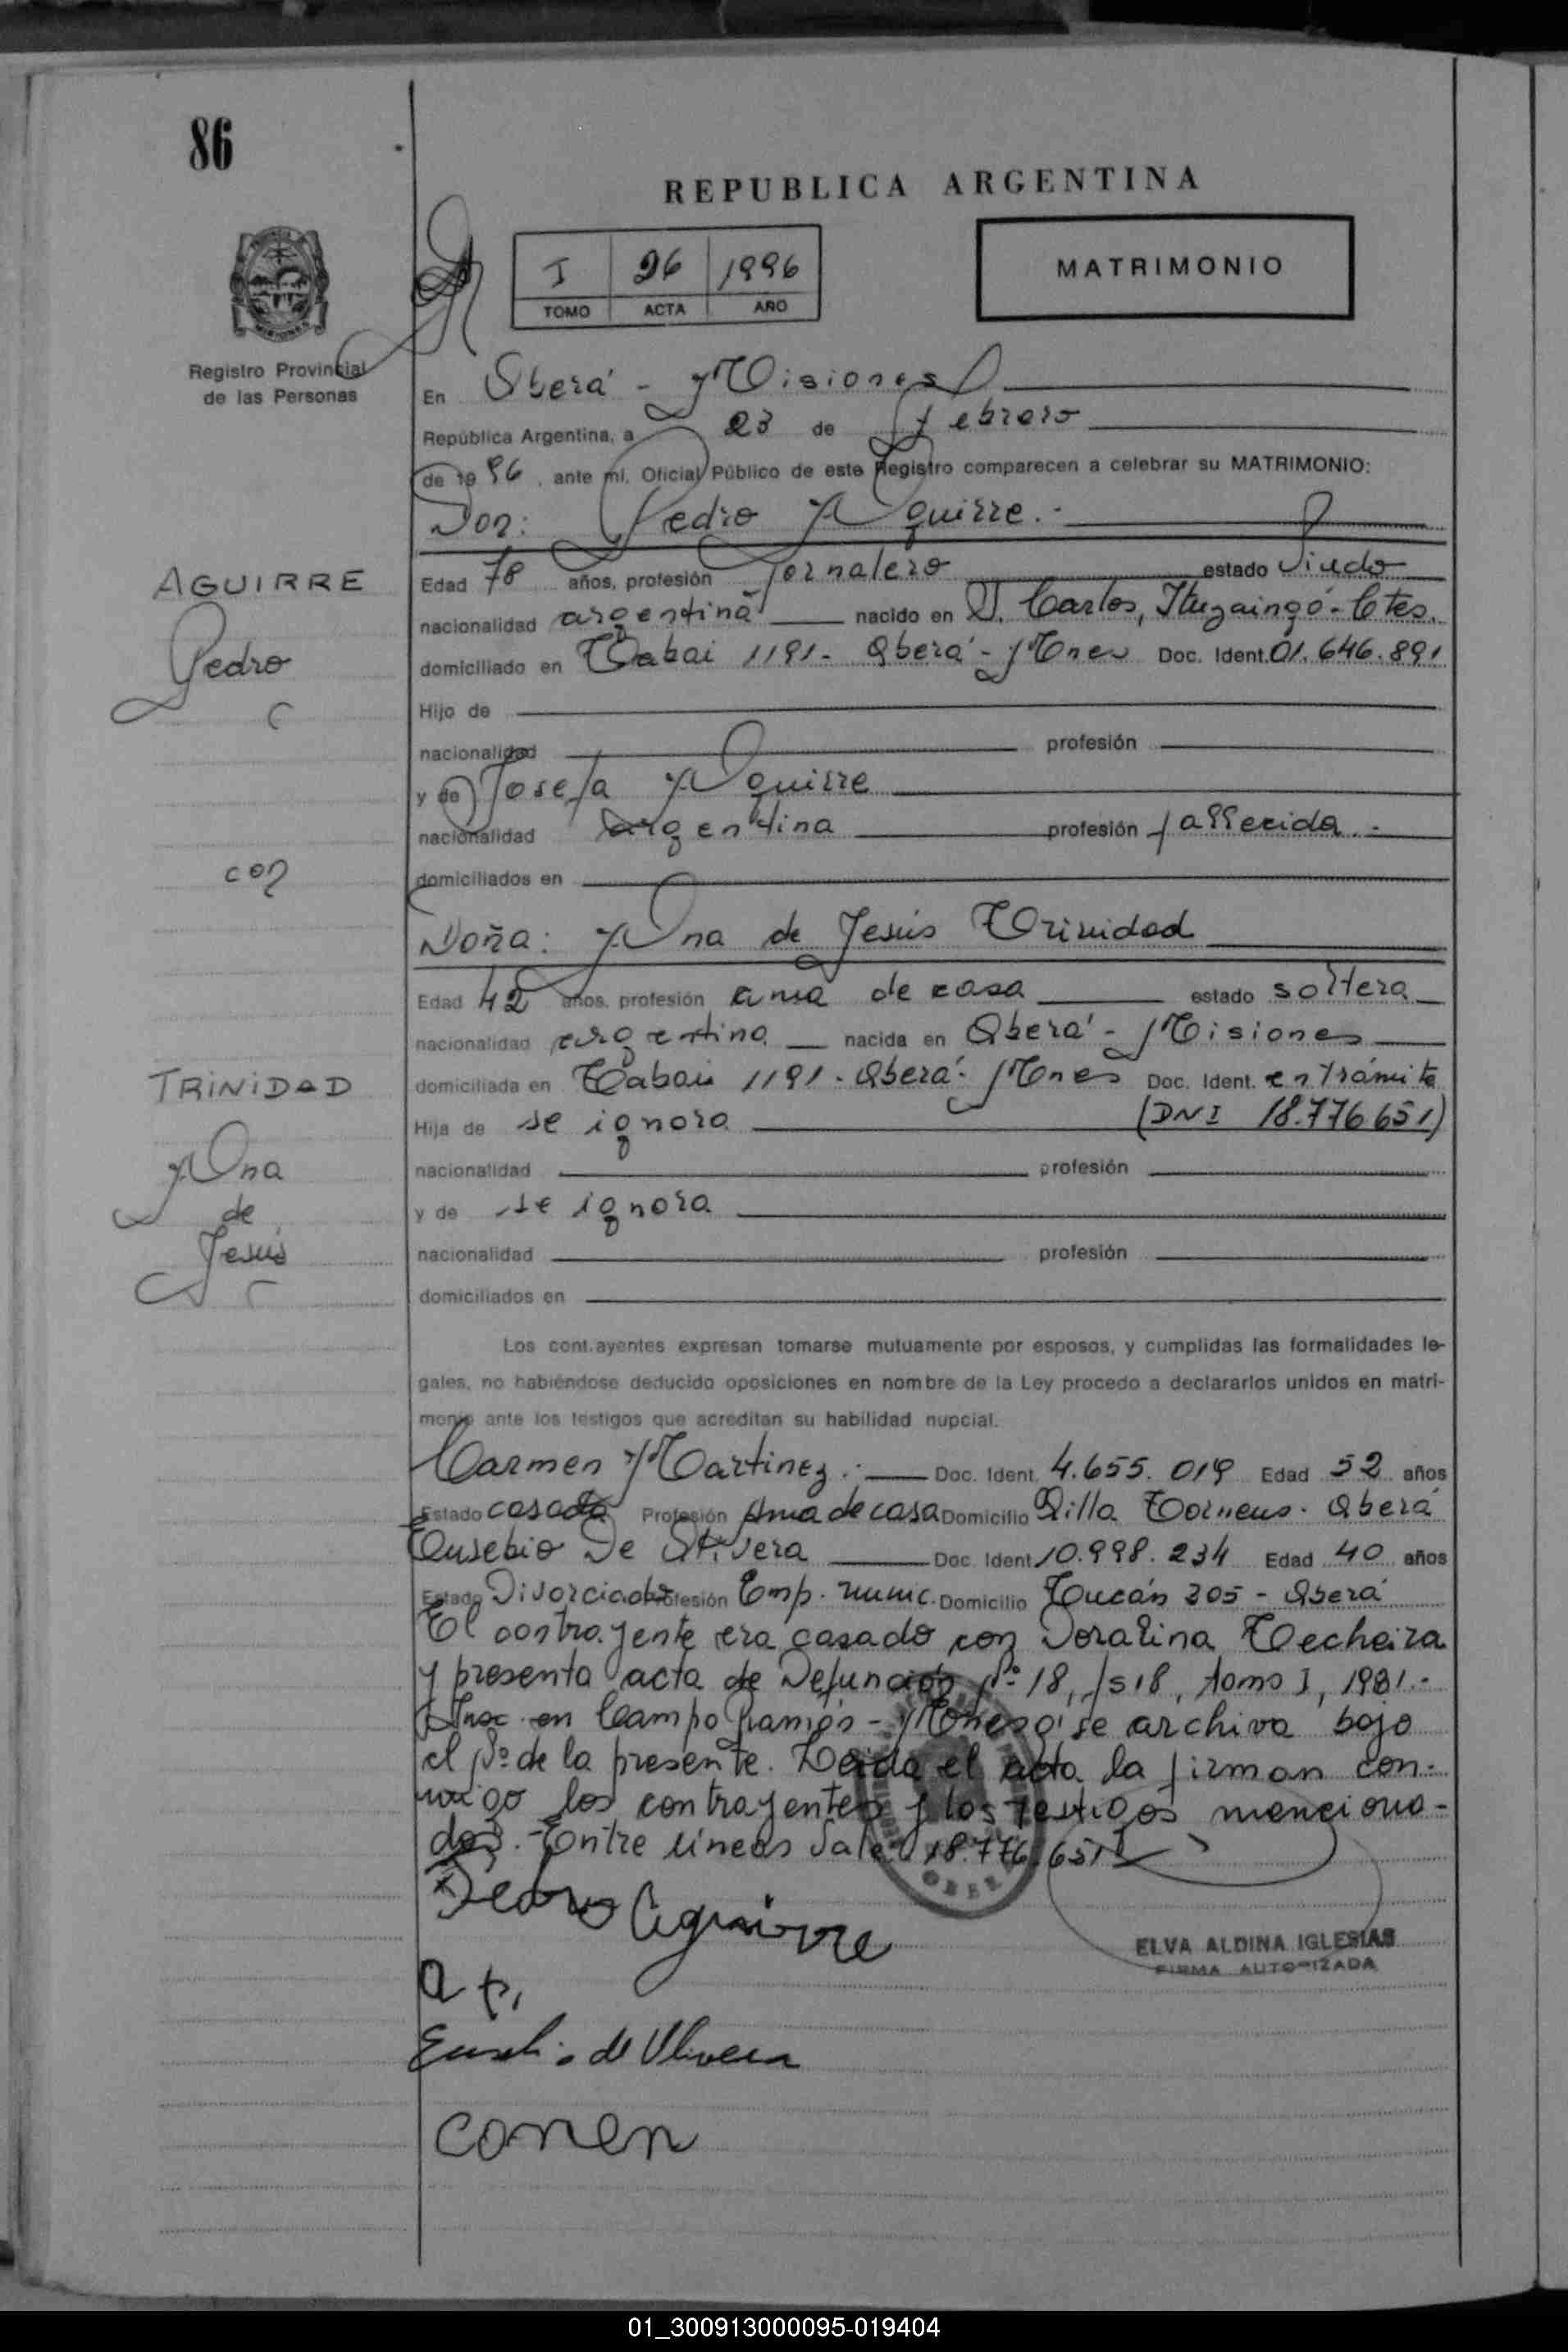 86
REPUBLICA ARGENTINA
I 26 1996
TOMO ACTA AÑO
MATRIMONIO
Registro Provincial
de las Personas
En Oberá - Misiones
República Argentina, a 23 de febrero
de 1996, ante mí, Oficial Público de este Registro comparecen a celebrar su MATRIMONIO:
Don: Pedro Aguirre.-
AGUIRRE
Pedro
Edad 78 años, profesión Jornalero estado Viudo
nacionalidad argentina nacido en S. Carlos, Ituzaingó - Ctes.
domiciliado en Tabai 1191 - Oberá - Mnes Doc. Ident. 01.646.891
Hijo de
nacionalidad profesión
y de Josefa Aguirre
nacionalidad argentina profesión fallecida.-
domiciliados en
con
Doña: Ana de Jesús Trinidad
Edad 42 años, profesión ama de casa estado soltera
nacionalidad argentina nacida en Oberá - Misiones
TRINIDAD
Ana
de
Jesús
domiciliada en Tabai 1191 - Oberá - Mnes Doc. Ident. en trámite
(DNI 18.776651)
Hija de se ignora
nacionalidad profesión
y de se ignora
nacionalidad profesión
domiciliados en
Los cont.ayentes expresan tomarse mutuamente por esposos, y cumplidas las formalidades le-
gales, no habiéndose deducido oposiciones en nombre de la Ley procedo a declararlos unidos en matri-
monio ante los testigos que acreditan su habilidad nupcial.
Carmen Martinez.- Doc. Ident. 4.655.019 Edad 52 años
Estado casada Profesión Ama de casa Domicilio Villa Oberá
Eusebio De Olivera Doc. Ident. 10.998.234 Edad 40 años
Estado Divorciado Profesión Emp. munic. Domicilio Tucán 205 - Oberá
El contrayente era casado con Doralina Techeira
y presenta acta de Defunción Nº 18, fs 18, tomo I, 1981.-
en Campo Ramón - Mnes se archiva bajo
el Nº de la presente. Leida el acta la firman con-
migo los contrayentes y los testigos menciona-
dos.- Entre lineas Vale: 18.776.651
Pedro Aguirre
ELVA ALDINA IGLESIAS
FIRMA AUTORIZADA
Eusebio de Olivera
01_300913000095-019404